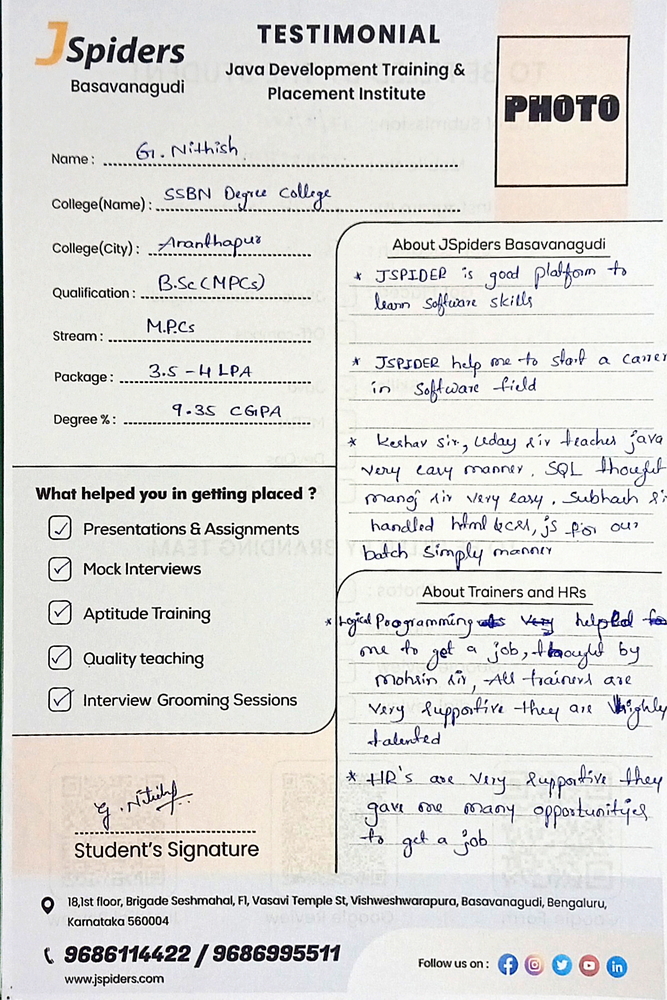 JSpiders
Basavanagudi
TESTIMONIAL
Java Development Training &
Placement Institute
PHOTO
Name : G. Nithish
College(Name) : SSBN Degree College
College(City) : Ananthapur
Qualification : B.Sc (MPCs)
Stream : M.P.Cs
Package : 3.5 - 4 LPA
Degree % : 9.35 CGPA
What helped you in getting placed ?
Presentations & Assignments
Mock Interviews
Aptitude Training
Quality teaching
Interview Grooming Sessions
G. Nithish
Student's Signature
About JSpiders Basavanagudi
* JSPIDER is good platform to
learn software skills
* JSPIDER help me to start a career
in software field
* Keshav sir, Uday sir teaches java
very easy manner. SQL thought
manoj sir very easy. Subhash sir
handled html & css, js for our
batch simply manner
About Trainers and HRs
* Logical Programming helped to
me to get a job, thought by
mohsin sir, All trainers are
very supportive they are highly
talented
* HR's are very supportive they
gave me many opportunityes
to get a job
18,1st floor, Brigade Seshmahal, F1, Vasavi Temple St, Vishweshwarapura, Basavanagudi, Bengaluru,
Karnataka 560004
9686114422 / 9686995511
www.jspiders.com
Follow us on :